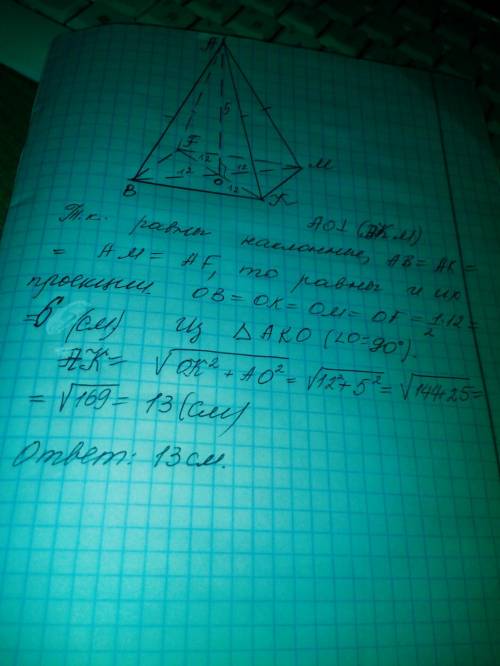 A
5
F
12
12
M
12
O
12
B
K
AO⊥(BKM)
Т.к. равны наклонные, AB = AK =
= AM = AF, то равны и их
проекции OB = OK = OM = OF = 1/2·12 =
= 6 (см) Из △AKO (∠O = 90°).
AK = √OK² + AO² = √12² + 5² = √144+25 =
= √169 = 13 (см)
Ответ: 13 см.